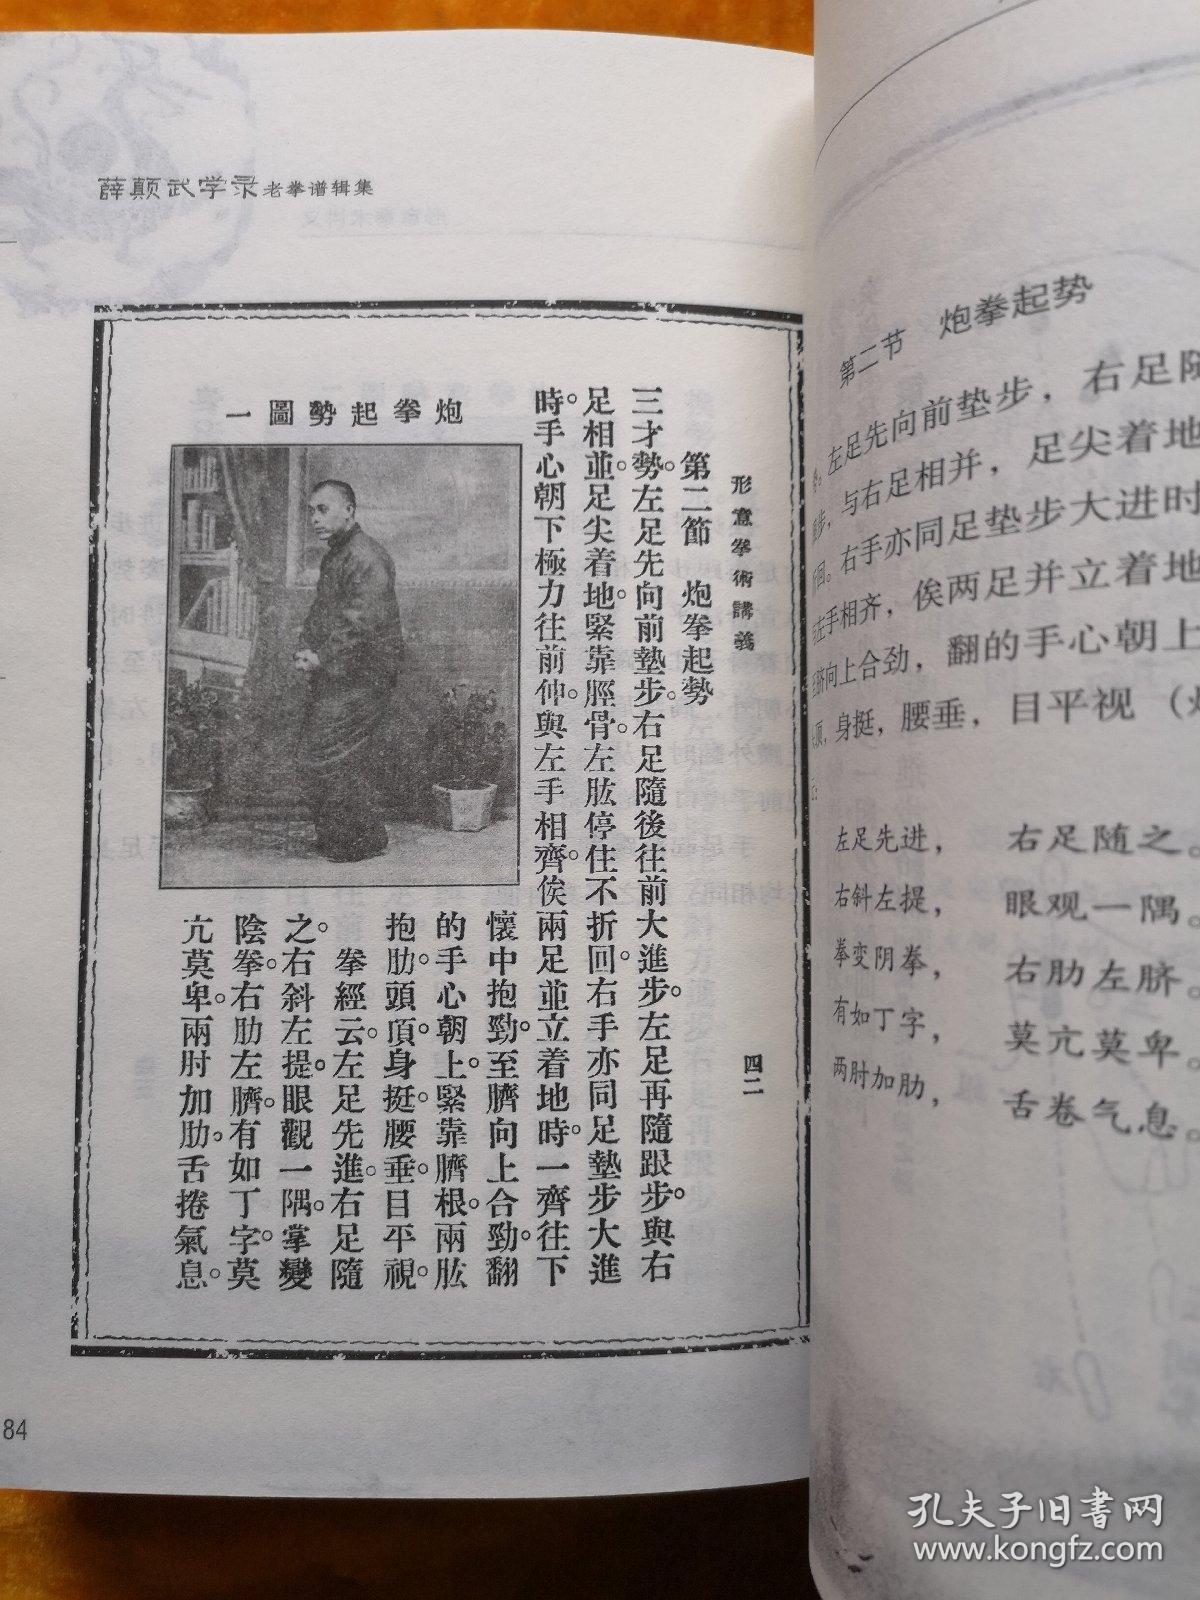 薛颠武学录老拳谱辑集
形意拳術講義
四二
三才勢。左足先向前墊步。右足隨後往前大進步。左足再隨跟步。與右
第二節 炮拳起勢
足相並。足尖着地。緊靠脛骨。左肱停住不折回。右手亦同足墊步大進
時。手心朝下極力往前伸。與左手相齊。俟兩足並立着地時。一齊往下
懷中抱勁。至臍向上合勁。翻
的手心朝上。緊靠臍根。兩肱
抱肋。頭頂。身挺。腰垂。目平視。
拳經云。左足先進。右足隨
之。右斜左提。眼觀一隅。掌變
陰拳。右肋左臍。有如丁字。莫
亢莫卑。兩肘加肋。舌捲氣息。
炮拳起勢圖一
84
第二节 炮拳起势
左足先向前垫步，右足随
步，与右足相并，足尖着地
回。右手亦同足垫步大进时
左手相齐，俟两足并立着地
脐向上合劲，翻的手心朝上
顶，身挺，腰垂，目平视（炮
左足先进， 右足随之。
右斜左提， 眼观一隅。
拳变阴拳， 右肋左脐。
有如丁字， 莫亢莫卑。
两肘加肋， 舌卷气息。
孔夫子旧书网
www.kongfz.com